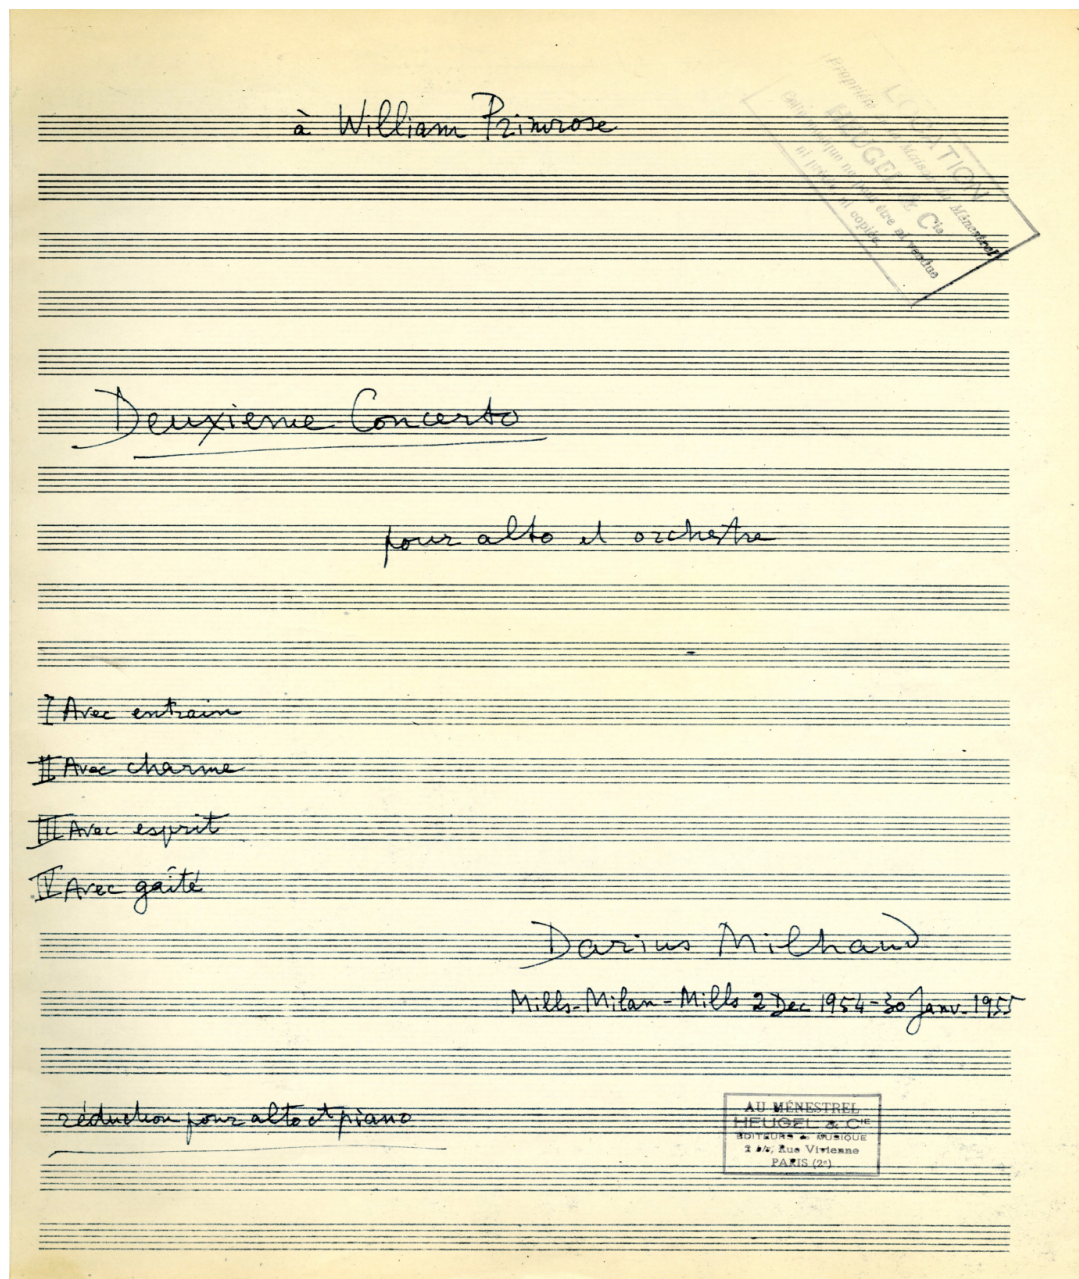 à William Primrose
LOCATION
Propriété de la Maison du Ménestrel
HEUGEL & Cie
ne peut être ni vendue
ni prêtée ni copiée
Deuxième Concerto
pour alto et orchestre
I Avec entrain
II Avec charme
III Avec esprit
IV Avec gaîté
Darius Milhaud
Mills-Milan-Mills 2 Dec 1954-30 Janv. 1955
réduction pour alto et piano
AU MÉNESTREL
HEUGEL & CIE
EDITEURS DE MUSIQUE
2 bis, Rue Vivienne
PARIS (2e)